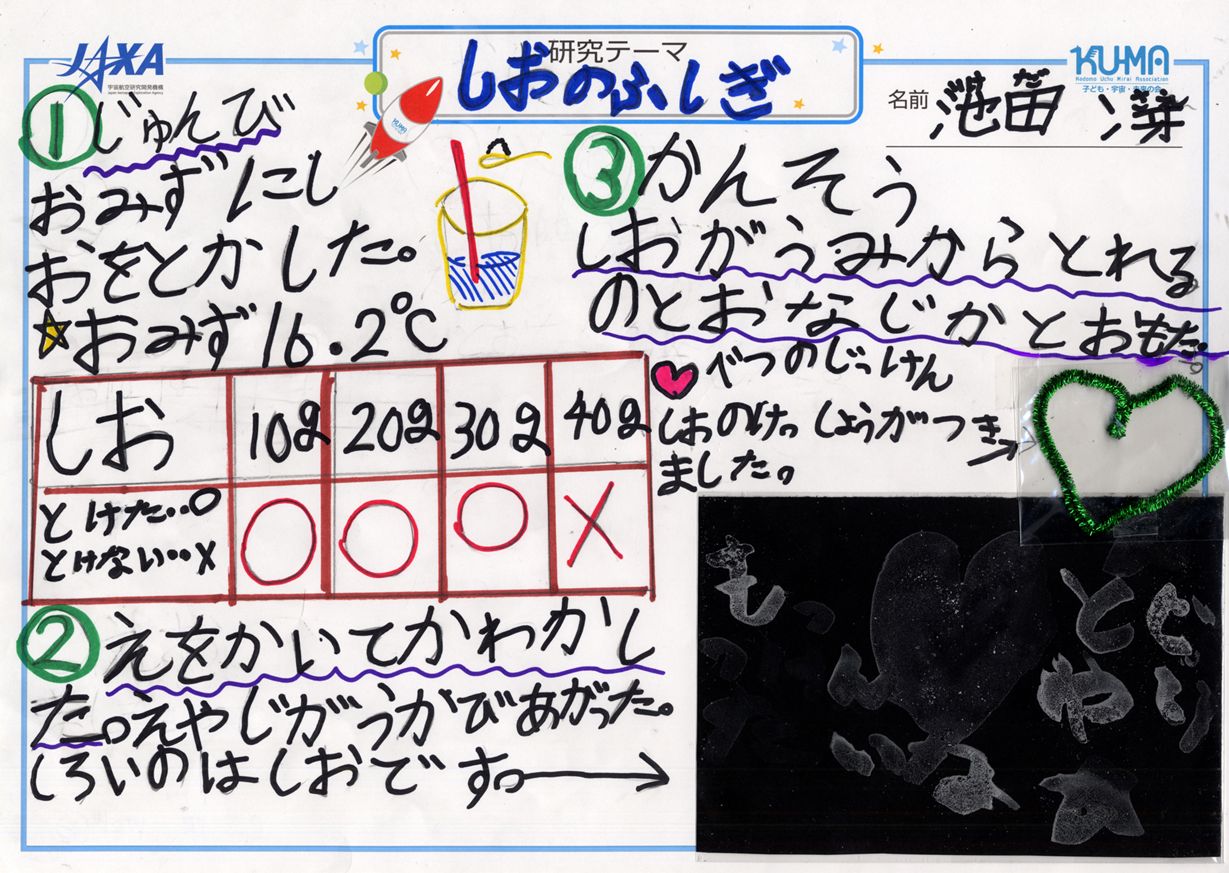 JAXA
宇宙航空研究開発機構
Japan Aerospace Exploration Agency
研究テーマ
しおのふしぎ
KUMA
KUMA
Kodomo Uchu Mirai Association
子ども・宇宙・未来の会
名前
池田
だ
①じゅんび
おみずにし
おをとかした。
おみず16.2℃
しお 10g 20g 30g 40g
とけた‥○
とけない‥×
○ ○ ○ ×
②えをかいてかわかし
た。えやじがうかびあがった。
しろいのはしおです。
③かんそう
しおがうみからとれる
のとおなじかとおもた。
べつのじっけん
しおのけっしょうがつき
ました。